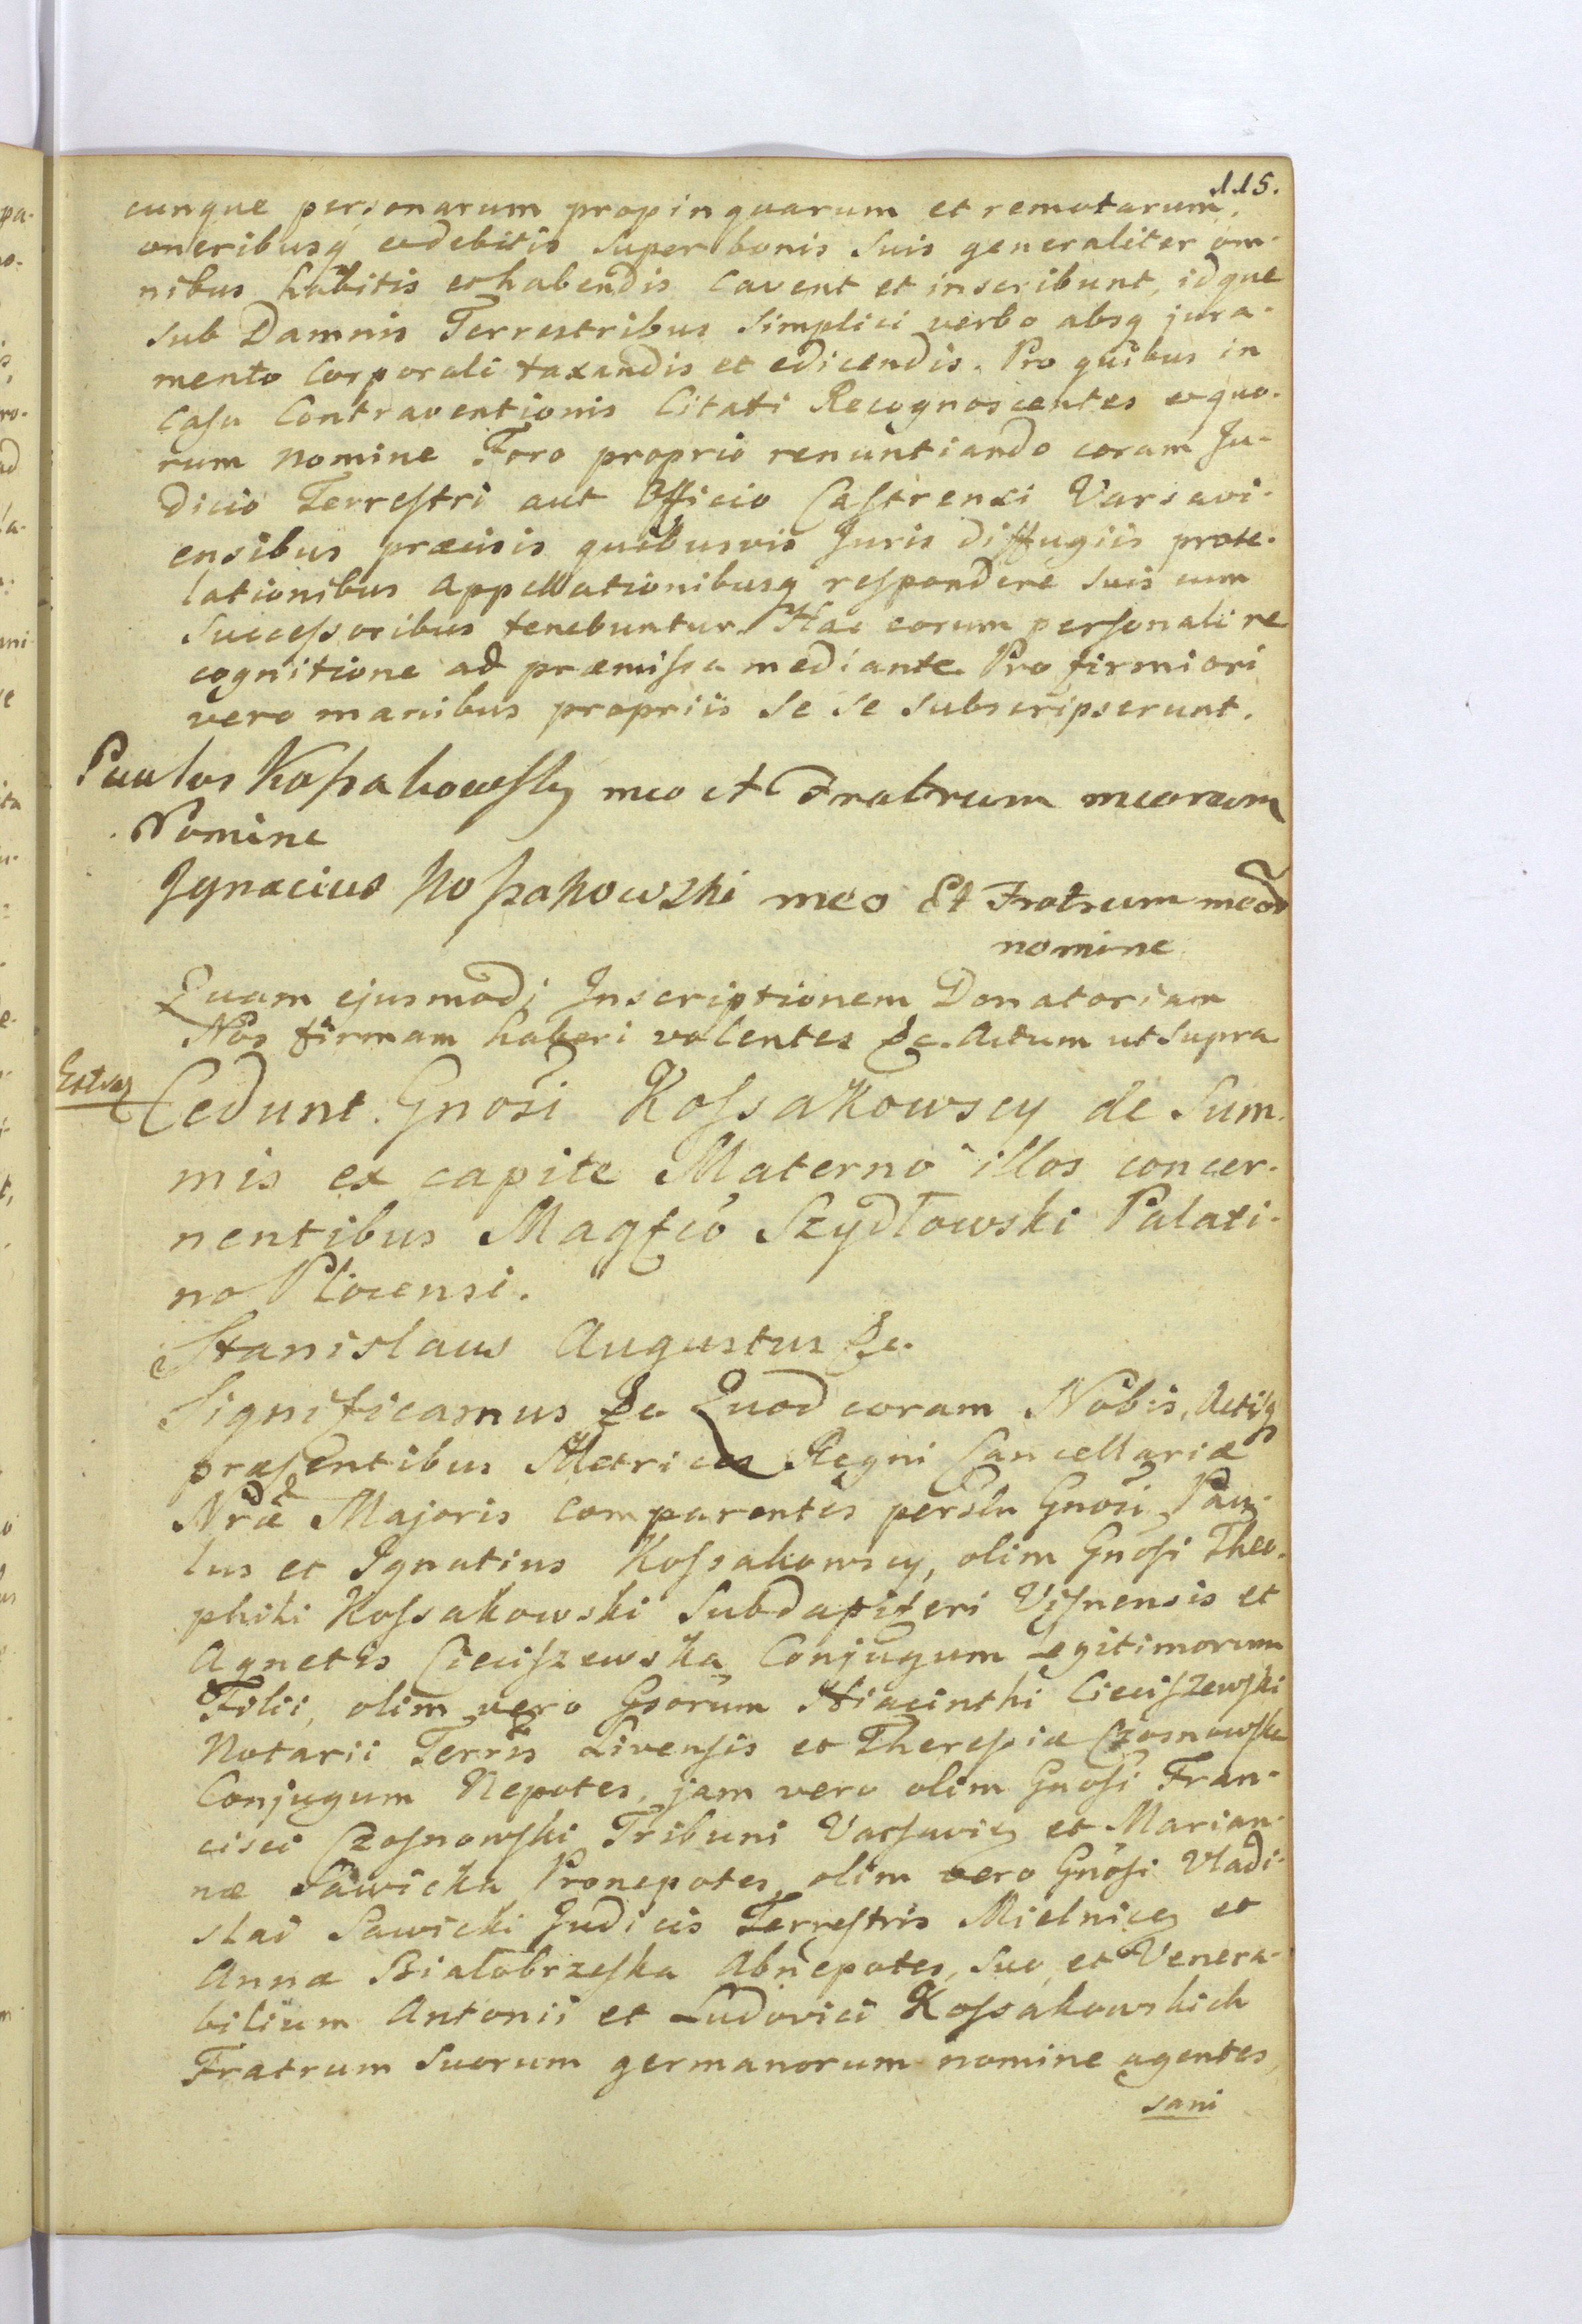 115.
cunque personarum propinquarum et remotarum,
oneribusq et debitis super bonis suis generaliter om-
nibus habitis et habendis cavent et inscribunt, idque
sub Damnis Terrestribus simplici verbo absq jura-
mento Corporali taxandis et edicendis. Pro quibus in
Casu Contraventionis Citati Recognoscentes et quo-
rum nomine Foro proprio renuntiando coram Ju-
dicio Terrestri aut Officio Castrensi Varsavi-
ensibus præcisis quibusvis Juris diffugiis prote-
lationibus Appellationibusq respondere suis cum
Successoribus tenebuntur. Hac eorum personali re
cognitione ad præmissa mediante. Pro firmiori
vero manibus propriis se se subscripserunt.
Paulus Kossakowsky meo et Fratrum meorum
Nomine
Ignacius Kossakowski meo Et Fratrum meor
nomine
Quam ejusmodi Inscriptionem Donatoriam
Nos firmam haberi volentes &c. Actum ut supra
Cedunt Gnosi Kossakowscy de Sum-
mis ex capite Materno illos concer-
nentibus Magfco Szydłowski Palati-
no Plocensi.
Stanislaus Augustus &c.
Significamus &c Quod coram Nobis, Actisq
præsentibus Metrices Regni Cancellariæ
Nræ Majoris comparentes persln Gnosi Pau-
lus et Ignatius Kossakowscy, olim Gnosi Theo-
phili Kossakowski Subdapiferi Visnensis et
Agnetis Cieciszewska Conjugum Legitimorum
Filii, olim vero Gsorum Hiacinthi Cieciszewski
Notarii Terris Livensis et Theresiæ Czosnowska
Conjugum Nepotes, jam vero olim Gnosi Fran-
cisci Czosnowski Tribuni Varsavię et Marian-
næ Sawicka Pronepotes, olim vero Gnosi Vladi-
slai Sawicki Judicis Terrestris Mielnicę et
Annæ Białobrzeska Abnepotes, suo, et Venera-
bilium Antonii et Ludovici Kossakowskich
Fratrum suorum germanorum nomine agentes,
sani